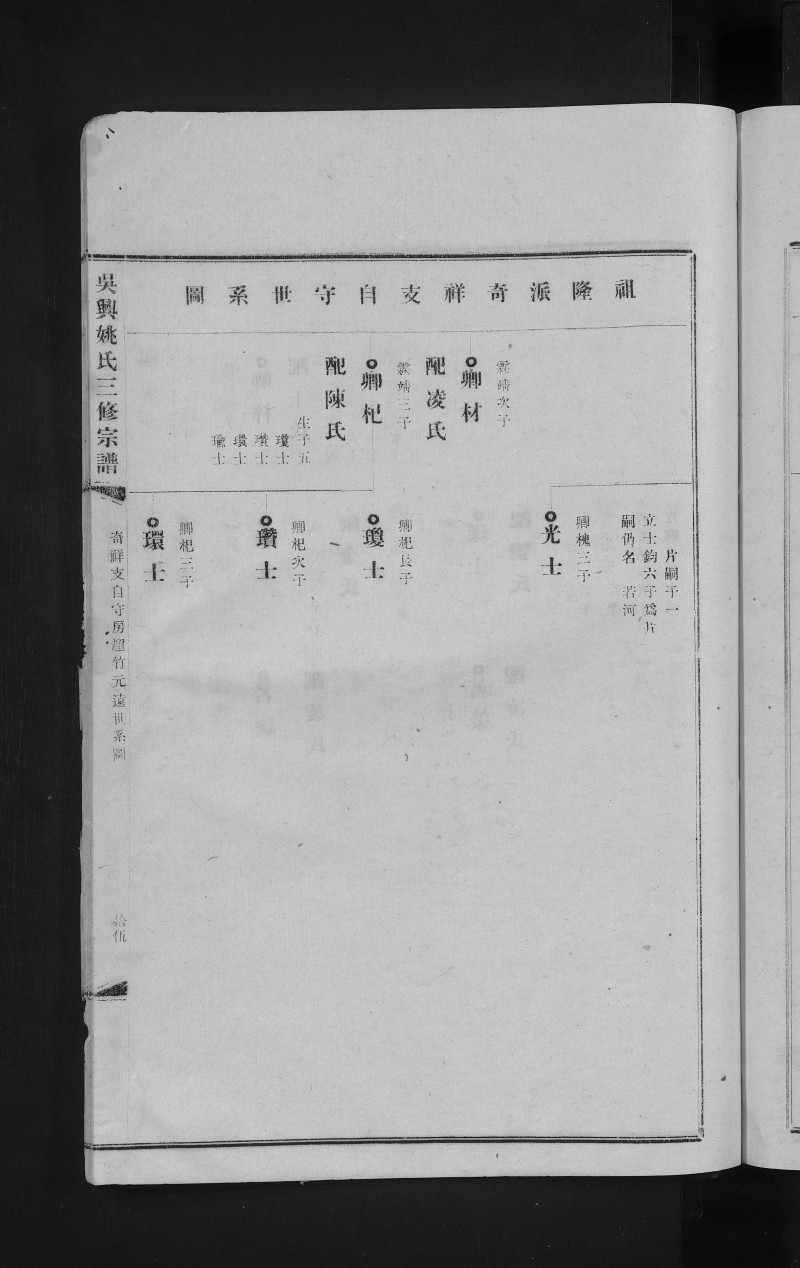 祖隆派奇祥支自守世系圖
霖端次子
卿材
配凌氏
霖端三子
卿杞
配陳氏
生子五
瓊士
瓚士
環士
士
片嗣子一
立士鈞六子為片
嗣仍名 若河
卿槐三子
光士
卿杞長子
瓊士
卿杞次子
瓚士
卿杞三子
環士
吳興姚氏三修宗譜
奇祥支自守房竹元遠世系圖
拾伍